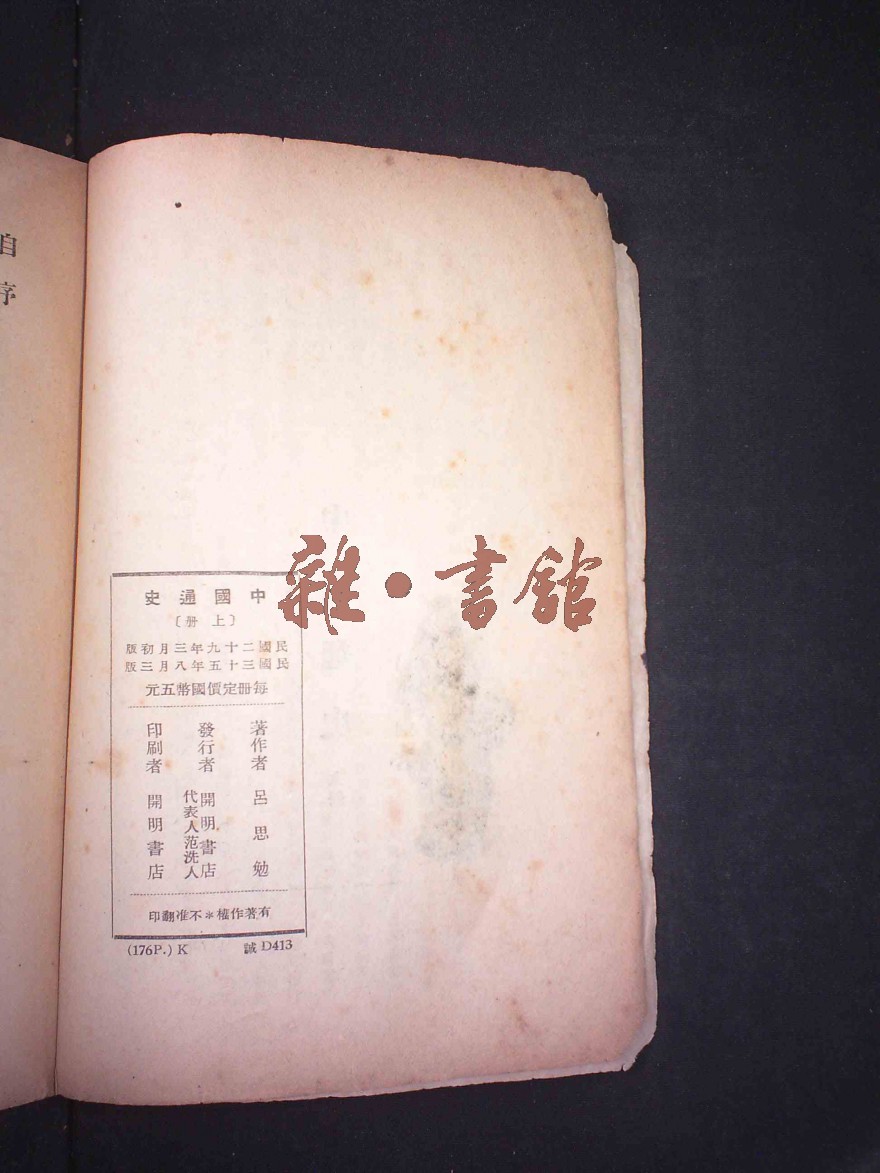 自序
雜·書館
中國通史
〔上冊〕
民國二十九年三月初版
民國三十五年八月三版
每冊定價國幣五元
著作者 呂思勉
發行者 開明書店
代表人范洗人
印刷者 開明書店
有著作權＊不准翻印
(176P.) K 誠 D413